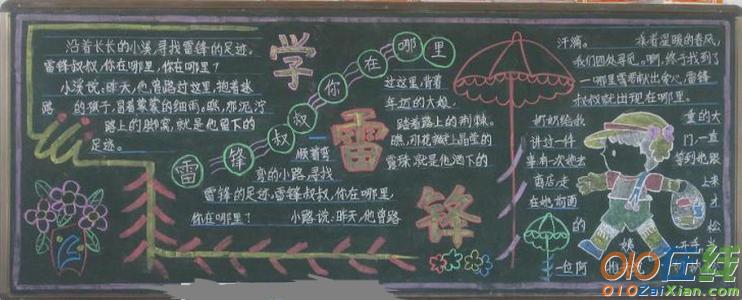 学雷锋
雷锋叔叔你在哪里
沿着长长的小溪,寻找雷锋的足迹。
雷锋叔叔,你在哪里,你在哪里?
小溪说:昨天,他曾路过这里,抱着迷
路的孩子,冒着蒙蒙的细雨。瞧,那泥泞
路上的脚窝,就是他留下的
足迹。
顺着弯
弯的小路,寻找
雷锋的足迹。雷锋叔叔,你在哪里,
你在哪里?
小路说:昨天,他曾路
过这里,背着
年迈的大娘,
踏着路上的荆棘。
瞧,那花瓣上晶莹的
露珠,就是他洒下的
汗滴。
乘着温暖的春风,
我们四处寻觅。啊,终于找到了
—哪里需要献出爱心,雷锋
叔叔就出现在哪里。
奶奶给我
讲过一件
事有一次她去
商店,走
在她前面
的
一位阿
姨
重的大
门,一直
等到她跟
上来
才
松
010在线
010ZaiXian.com